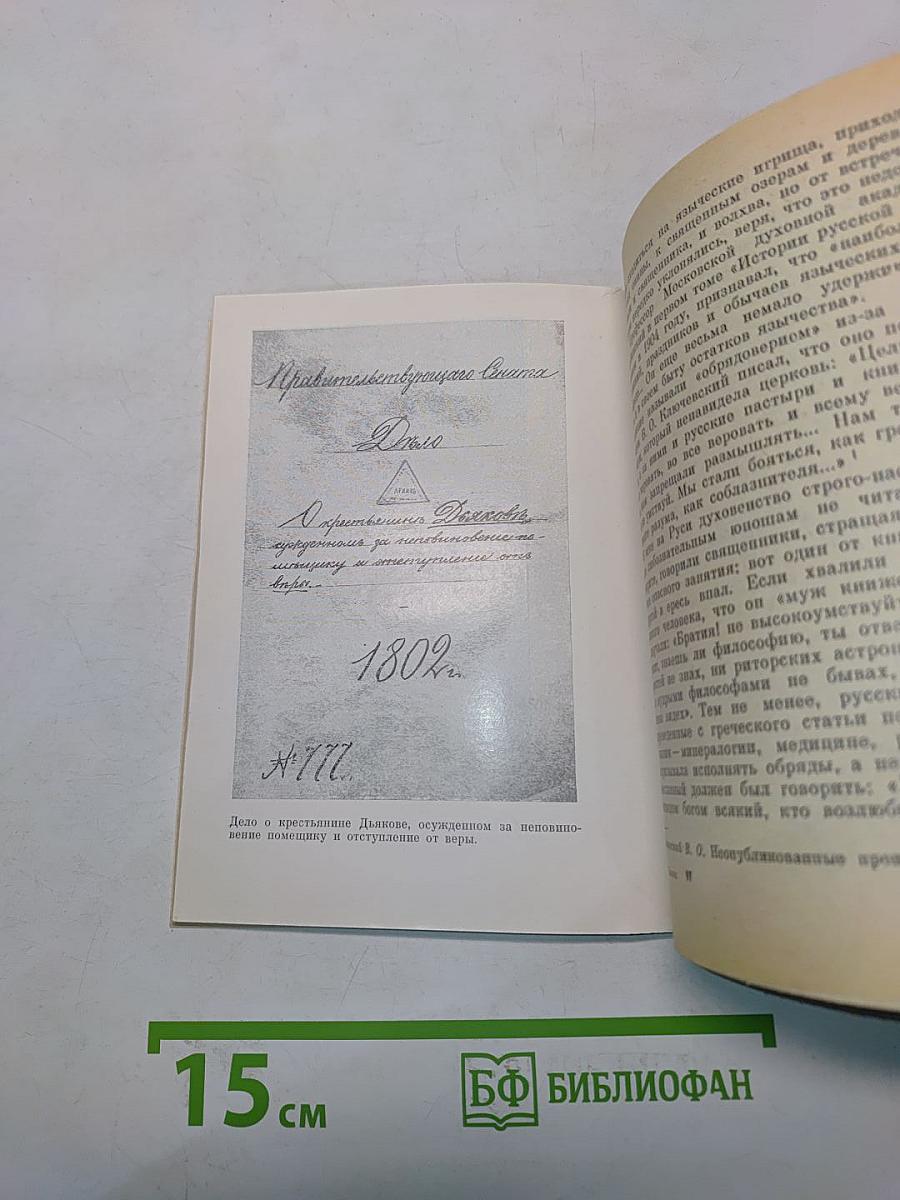 Правительствующаго Сената
Дѣло
АРХИВЪ
О крестьянинѣ Дьяковѣ,
сужденномъ за неповиновение по-
мѣщику и отступление отъ
вѣры.
1802 г.
№ 777.
Дело о крестьянине Дьякове, осужденном за неповино-
вение помещику и отступление от веры.
на языческие игрища, приход
к священным озерам и дерев
и священника, и волхва, но от встреч
уклонялись, веря, что это недо
Московской духовной акад
в первом томе «Истории русской
в 1904 году, признавал, что «наибол
праздников и обычаев языческих
Он еще весьма немало удержи
в своем быту остатков язычества».
называли «обрядоверием» из-за
В. О. Ключевский писал, что оно по
который ненавидела церковь: «Цел
за ними и русские пастыри и кни
во все веровать и всему ве
запрещали размышлять... Нам т
Мы стали бояться, как гре
разума, как соблазнителя...» 1
на Руси духовенство строго-нас
юношам не чита
говорили священники, стращая
занятия: вот один от кни
в ересь впал. Если хвалили
человека, что он «муж книже
«Братия! не высокоумствуйт
знаешь ли философию, ты отве
не знах, ни риторских астрон
философами не бывах,
Тем не менее, русски
с греческого статьи по
минералогии, медицине,
исполнять обряды, а не
должен был говорить: «
богом всякий, кто возлюб
В. О. Неопубликованные прои